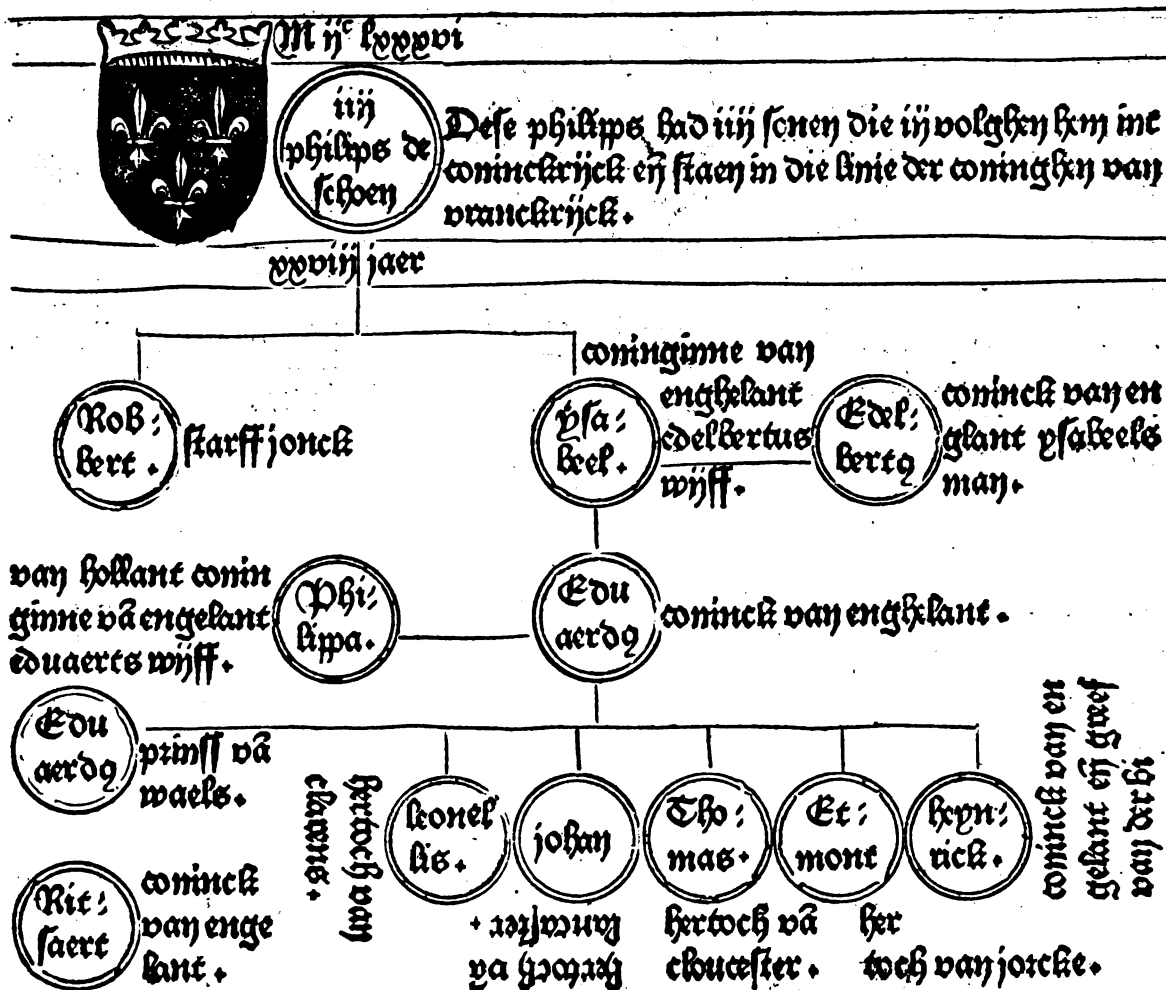 M ijᶜ lxxxvi
iiij
philips de
schoen
Dese philipps had iiij sonen die iij volghen hem int
coninckrijck eñ staen in die linie der coninghen van
vranckrijck.
xxviij jaer
Rob:
bert.
starff jonck
ysa:
beel.
coninginne van
enghelant
edelbertus
wijff.
Edel:
bertꝯ
coninck van en
glant ysabeels
man.
van hollant conin
ginne vā engelant
eduaerts wijff.
Phi:
lippa.
Edu
aerdꝯ
coninck van enghelant.
Edu
aerdꝯ
prinss vā
waels.
hertoch van
clarens.
leonel
lis.
johan
hertoch vā
lancaster.
Tho:
mas.
hertoch vā
cloucester.
Et:
mont
her
toch van jorcke.
heyn:
rick.
coninck van en
gelant eñ greef
van derbi
Rit:
saert
coninck
van enge
lant.